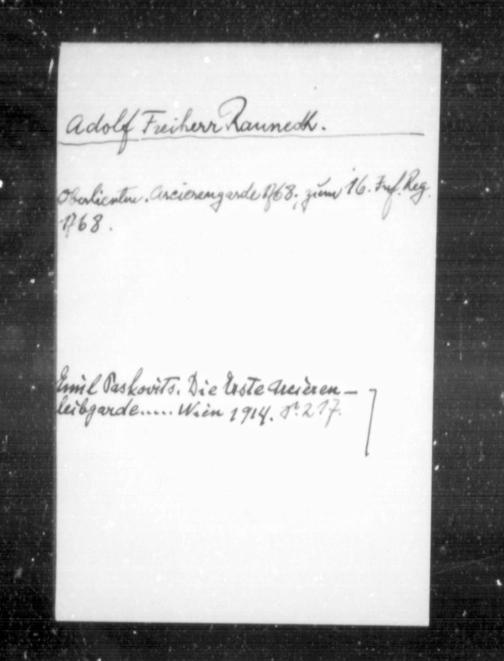 Adolf Freiherr Rauneck.
Oberlieutn. Arcierengarde 1768, zum 16. Inf. Reg.
1768.
Emil Paskovits. Die Erste Arcieren-
leibgarde..... Wien 1914. S. 217.